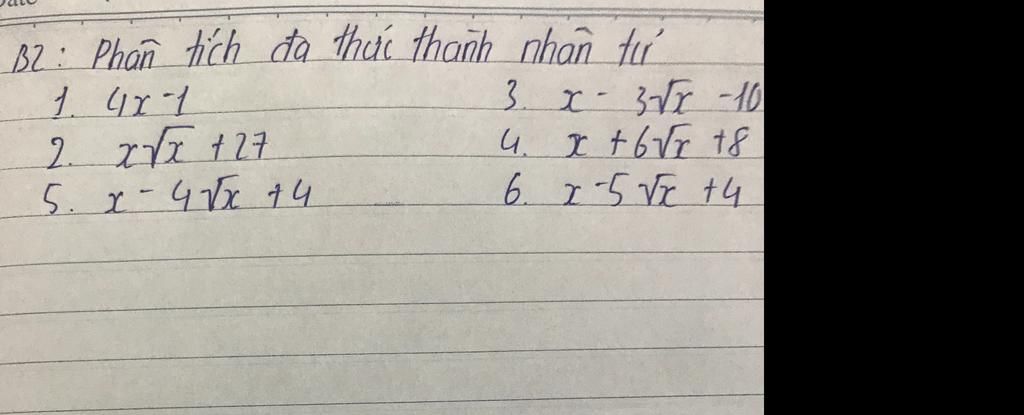 B2: Phân tích đa thức thành nhân tử
1. 4x - 1 3. x - 3√x - 10
2. x√x + 27 4. x + 6√x + 8
5. x - 4√x + 4 6. x - 5√x + 4